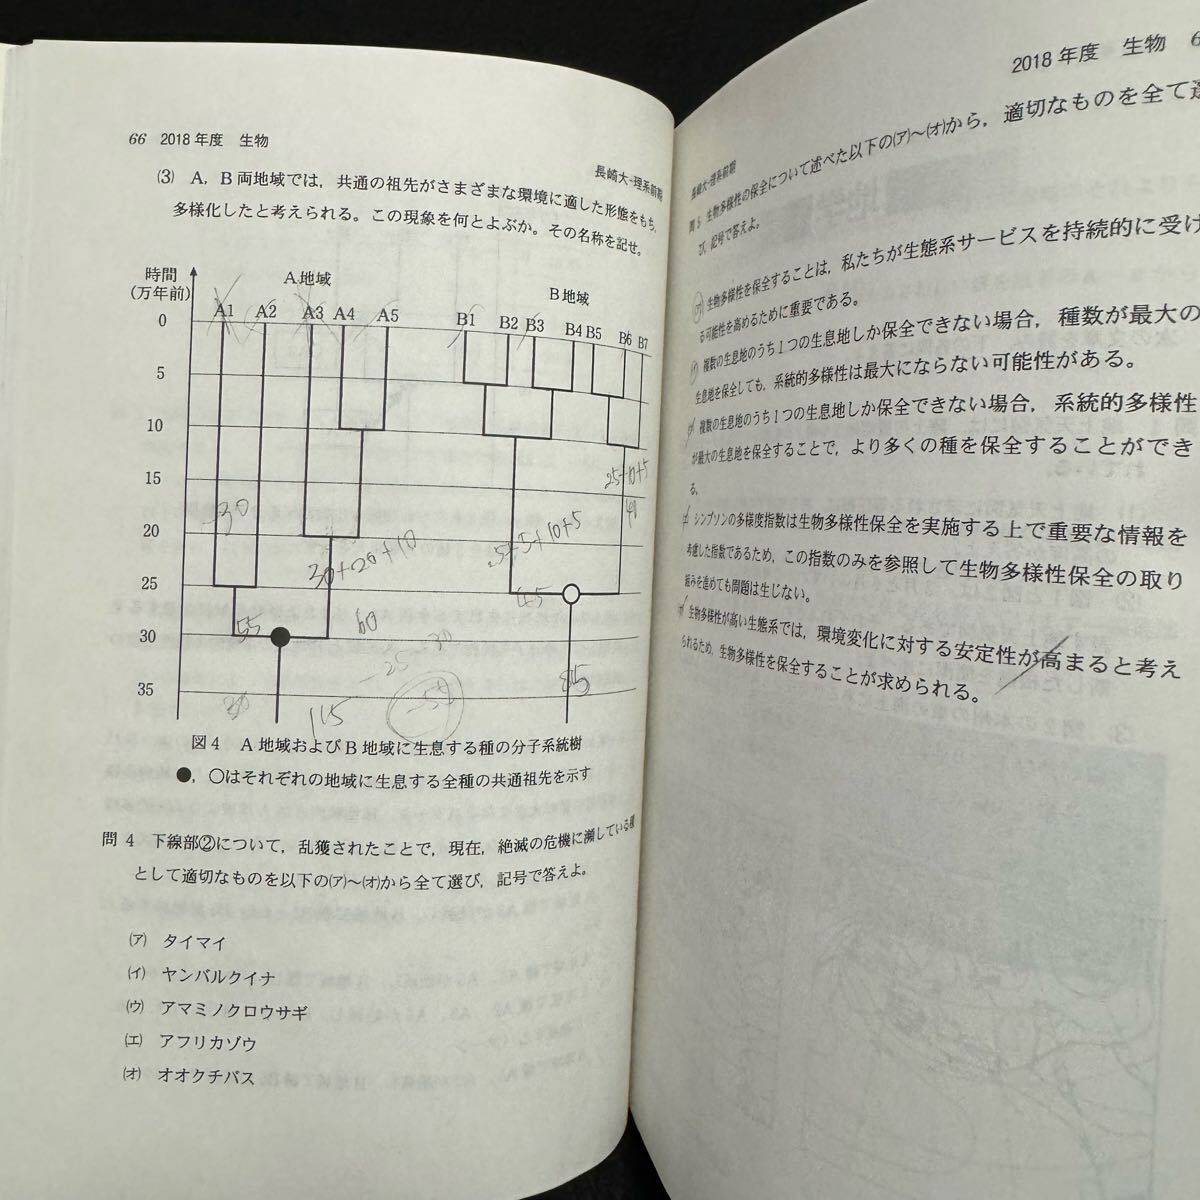 66 2018年度 生物
長崎大-理系前期
(3) A，B両地域では，共通の祖先がさまざまな環境に適した形態をもち，
多様化したと考えられる。この現象を何とよぶか。その名称を記せ。
時間
(万年前)
A地域
B地域
A1 A2 A3 A4 A5 B1 B2 B3 B4 B5 B6 B7
0
5
10
15
20
25
30
35
30
30+20+10
55
60
25+10+5
5+5+10+5
45
85
115
図4 A地域およびB地域に生息する種の分子系統樹
●，○はそれぞれの地域に生息する全種の共通祖先を示す
問4 下線部②について，乱獲されたことで，現在，絶滅の危機に瀕している種
として適切なものを以下の(ア)～(オ)から全て選び，記号で答えよ。
(ア) タイマイ
(イ) ヤンバルクイナ
(ウ) アマミノクロウサギ
(エ) アフリカゾウ
(オ) オオクチバス
2018年度 生物 6
長崎大-理系前期
問5 生物多様性の保全について述べた以下の(ア)～(オ)から，適切なものを全て選
び，記号で答えよ。
(ア) 生物多様性を保全することは，私たちが生態系サービスを持続的に受け
る可能性を高めるために重要である。
(イ) 複数の生息地のうち1つの生息地しか保全できない場合，種数が最大の
生息地を保全しても，系統的多様性は最大にならない可能性がある。
(ウ) 複数の生息地のうち1つの生息地しか保全できない場合，系統的多様性
が最大の生息地を保全することで，より多くの種を保全することができ
る。
(エ) シンプソンの多様度指数は生物多様性保全を実施する上で重要な情報を
考慮した指数であるため，この指数のみを参照して生物多様性保全の取り
組みを進めても問題は生じない。
(オ) 生物多様性が高い生態系では，環境変化に対する安定性が高まると考え
られるため，生物多様性を保全することが求められる。